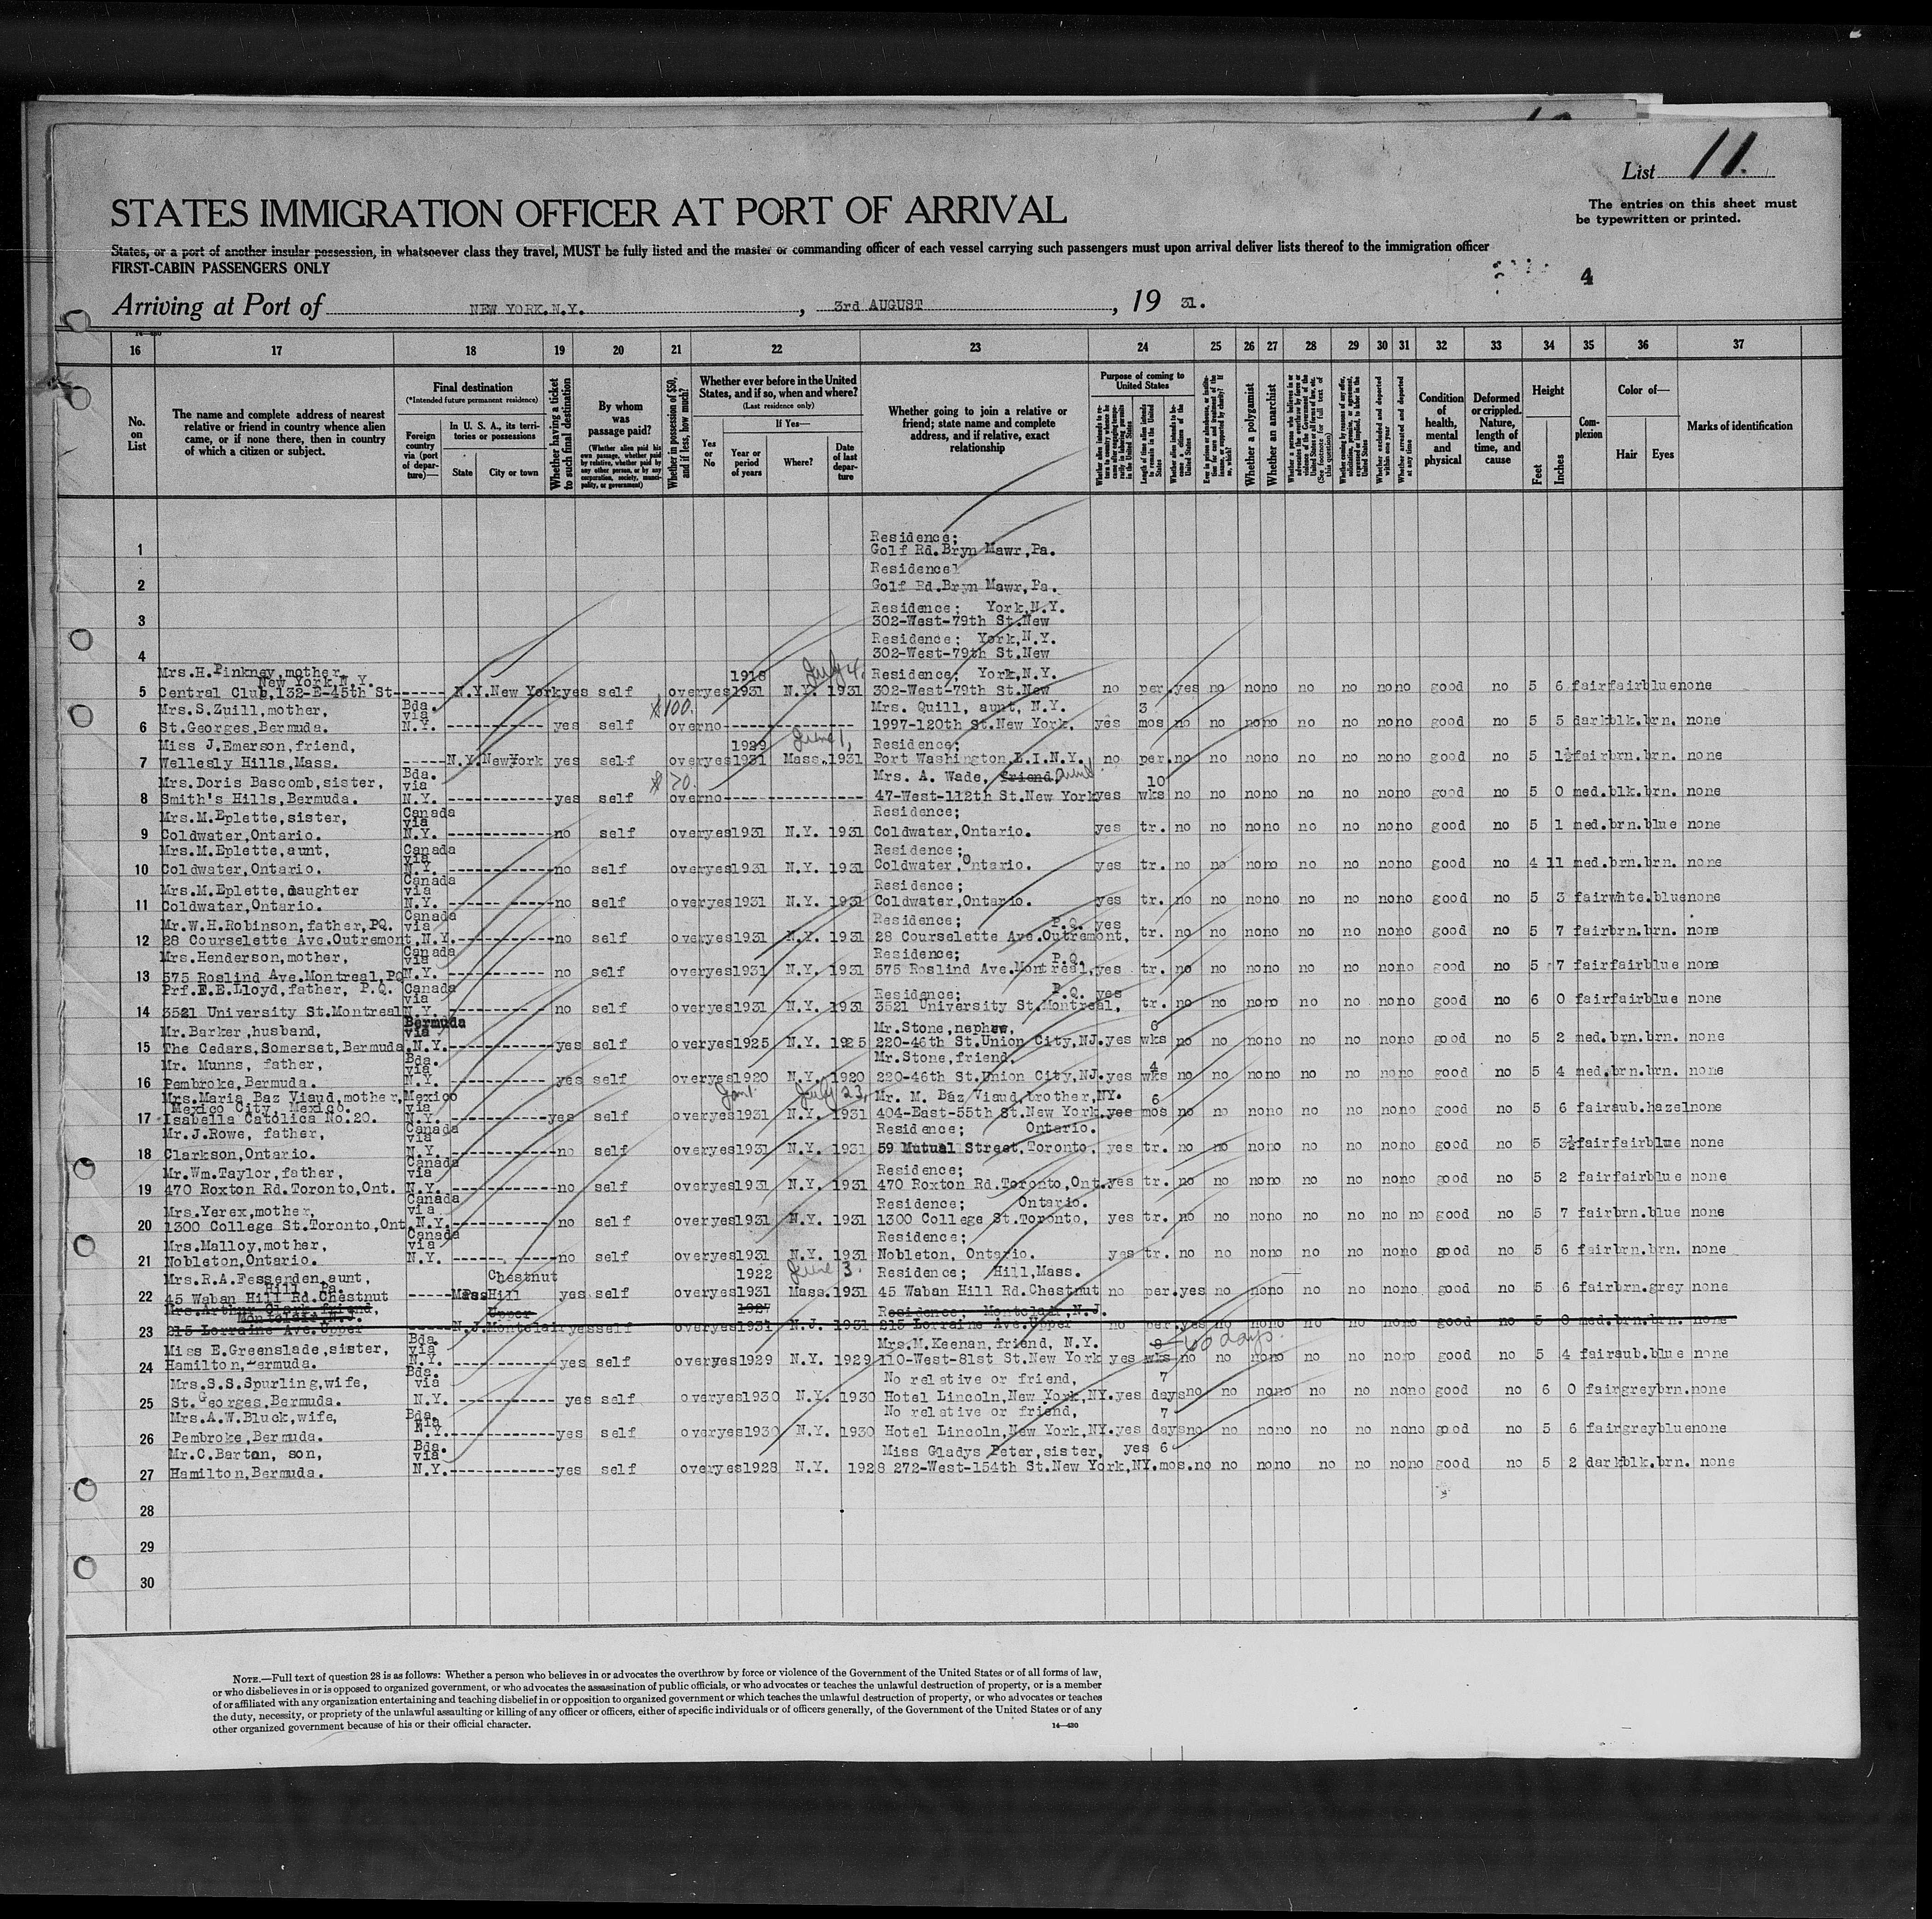 List 11.
The entries on this sheet must
be typewritten or printed.
STATES IMMIGRATION OFFICER AT PORT OF ARRIVAL
States, or a port of another insular possession, in whatsoever class they travel, MUST be fully listed and the master or commanding officer of each vessel carrying such passengers must upon arrival deliver lists thereof to the immigration officer
FIRST-CABIN PASSENGERS ONLY
4
Arriving at Port of NEW YORK.N.Y. , 3rd AUGUST , 19 31.
16 17 18 19 20 21 22 23 24 25 26 27 28 29 30 31 32 33 34 35 36 37
No. on List
The name and complete address of nearest relative or friend in country whence alien came, or if none there, then in country of which a citizen or subject.
Final destination
(*Intended future permanent residence)
Foreign country via (port of departure)—
In U. S. A., its territories or possessions
State
City or town
Whether having a ticket to such final destination
By whom was passage paid?
(Whether alien paid his own passage, whether paid by relative, whether paid by any other person, or by any corporation, society, municipality, or government)
Whether in possession of $50, and if less, how much?
Whether ever before in the United States, and if so, when and where?
(Last residence only)
Yes or No
If Yes—
Year or period of years
Where?
Date of last departure
Whether going to join a relative or friend; state name and complete address, and if relative, exact relationship
Purpose of coming to United States
Length of time alien intends to remain in the United States
Whether a polygamist
Whether an anarchist
Condition of health, mental and physical
Deformed or crippled. Nature, length of time, and cause
Height
Feet
Inches
Complexion
Color of—
Hair
Eyes
Marks of identification
Residence;
1 Golf Rd.Bryn Mawr,Pa.
Residence
2 Golf Rd.Bryn Mawr,Pa.
Residence; York,N.Y.
3 302-West-79th St.New
Residence; York,N.Y.
4 302-West-79th St.New
Mrs.H.Pinkney,mother, New York,N.Y. 1918 July 4. Residence; York,N.Y.
5 Central Club,132-E-45th St------ N.Y. New York yes self over yes 1931 N.Y. 1931 302-West-79th St.New no per. yes no no no no no no no good no 5 6 fair fair blue none
Mrs.S.Zuill,mother, Bda. via $100. Mrs. Quill, aunt, N.Y. 3
6 St.Georges,Bermuda. N.Y. ---------- yes self over no -------------- 1997-120th St.New York. yes mos no no no no no no no no good no 5 5 dark blk. brn. none
Miss J.Emerson,friend, 1929 June 1, Residence;
7 Wellesly Hills,Mass. ----- N.Y. New York yes self over yes 1931 Mass. 1931 Port Washington,L.I.N.Y. no per. no no no no no no no no good no 5 1½ fair brn. brn. none
Mrs.Doris Bascomb,sister, Bda. via $ 20. Mrs. A. Wade, friend, aunt 10
8 Smith's Hills,Bermuda. N.Y. ----------- yes self over no -------------- 47-West-112th St.New York yes wks no no no no no no no no good no 5 0 med. blk. brn. none
Mrs.M.Eplette,sister, Canada via Residence;
9 Coldwater,Ontario. N.Y. ----------- no self over yes 1931 N.Y. 1931 Coldwater,Ontario. yes tr. no no no no no no no no good no 5 1 med. brn. blue none
Mrs.M.Eplette,aunt, Canada via Residence;
10 Coldwater,Ontario. N.Y. ----------- no self over yes 1931 N.Y. 1931 Coldwater,Ontario. yes tr. no no no no no no no no good no 4 11 med. brn. brn. none
Mrs.M.Eplette,daughter Canada via Residence;
11 Coldwater,Ontario. N.Y. ------ ----- no self over yes 1931 N.Y. 1931 Coldwater,Ontario. yes tr. no no no no no no no no good no 5 3 fair whte. blue none
Mr.W.H.Robinson,father,PQ. Canada via Residence; P.Q. yes
12 28 Courselette Ave.Outremont, N.Y. ----------- no self over yes 1931 N.Y. 1931 28 Courselette Ave.Outremont, tr. no no no no no no no no good no 5 7 fair brn. brn. none
Mrs.Henderson,mother, Canada via Residence; P.Q.
13 575 Roslind Ave.Montreal,PQ N.Y. ---------- no self over yes 1931 N.Y. 1931 575 Roslind Ave.Montreal, yes tr. no no no no no no no no good no 5 7 fair fair blue none
Prf.E.E.Lloyd,father, P.Q. Canada via Residence; P.Q. yes
14 3521 University St.Montreal N.Y. ---------- no self over yes 1931 N.Y. 1931 3521 University St.Montreal, tr. no no no no no no no no good no 6 0 fair fair blue none
Mr.Barker,husband, Bermuda via Mr.Stone,nephew, 6
15 The Cedars,Somerset,Bermuda. N.Y. ----------- yes self over yes 1925 N.Y. 1925 220-46th St.Union City,NJ. yes wks no no no no no no no no good no 5 2 med. brn. brn. none
Mr. Munns, father, Bda. via Mr.Stone,friend, 4
16 Pembroke,Bermuda. N.Y. ----------- yes self over yes 1920 N.Y. 1920 220-46th St.Union City,NJ. yes wks no no no no no no no no good no 5 4 med. brn. brn. none
Mrs.Maria Baz Viaud,mother, Mexico City, Mexico. Mexico via July 23, Mr. M. Baz Viaud,brother,NY. 6
17 Isabella Catolica No.20. N.Y. ---------- yes self over yes 1931 N.Y. 1931 404-East-55th St.New York. yes mos no no no no no no no no good no 5 6 fair aub. hazel none
Mr.J.Rowe, father, Canada via Residence; Ontario.
18 Clarkson,Ontario. N.Y. ----------- no self over yes 1931 N.Y. 1931 59 Mutual Street,Toronto, yes tr. no no no no no no no no good no 5 3½ fair fair blue none
Mr.Wm.Taylor,father, Canada via Residence;
19 470 Roxton Rd.Toronto,Ont. N.Y. ----------- no self over yes 1931 N.Y. 1931 470 Roxton Rd.Toronto,Ont. yes tr. no no no no no no no no good no 5 2 fair fair blue none
Mrs.Yerex,mother, Canada via Residence; Ontario.
20 1300 College St.Toronto,Ont. N.Y. ---------- no self over yes 1931 N.Y. 1931 1300 College St.Toronto, yes tr. no no no no no no no no good no 5 7 fair brn. blue none
Mrs.Malloy,mother, Canada via Residence;
21 Nobleton,Ontario. N.Y. ----------- no self over yes 1931 N.Y. 1931 Nobleton, Ontario. yes tr. no no no no no no no no good no 5 6 fair brn. brn. none
Mrs.R.A.Fessenden,aunt, Hill, Pa. Chestnut 1922 June 3. Residence; Hill,Mass.
22 45 Waban Hill Rd.Chestnut ----- Hill yes self over yes 1931 Mass. 1931 45 Waban Hill Rd.Chestnut no per. yes no no no no no no no good no 5 6 fair brn. grey none
Mrs.Arthur Clark,friend, Montclair,N.J. Upper 1927 Residence; Montclair,N.J.
23 215 Lorraine Ave.Upper ----- N.J. Montclair yes self over yes 1931 N.J. 1931 215 Lorraine Ave.Upper no per. yes no no no no no no no good no 5 0 med. brn. brn. none
Miss E.Greenslade,sister, Bda. via Mrs.M.Keenan,friend, N.Y. 8 60 days.
24 Hamilton,Bermuda. N.Y. ----------- yes self over yes 1929 N.Y. 1929 110-West-81st St.New York yes wks no no no no no no no no good no 5 4 fair aub. blue none
Mrs.S.S.Spurling,wife, Bda. via No relative or friend, 7
25 St.Georges,Bermuda. N.Y. ----------- yes self over yes 1930 N.Y. 1930 Hotel Lincoln,New York,NY. yes days no no no no no no no no good no 6 0 fair grey brn. none
Mrs.A.W.Bluck,wife, Bda. via No relative or friend, 7
26 Pembroke,Bermuda. N.Y. ----------- yes self over yes 1930 N.Y. 1930 Hotel Lincoln,New York,NY. yes days no no no no no no no no good no 5 6 fair grey blue none
Mr.C.Barton, son, Bda. via Miss Gladys Peter,sister, yes 6
27 Hamilton,Bermuda. N.Y. ----------- yes self over yes 1928 N.Y. 1928 272-West-154th St.New York,NY. mos. no no no no no no no no good no 5 2 dark blk. brn. none
28
29
30
NOTE.—Full text of question 28 is as follows: Whether a person who believes in or advocates the overthrow by force or violence of the Government of the United States or of all forms of law,
or who disbelieves in or is opposed to organized government, or who advocates the assassination of public officials, or who advocates or teaches the unlawful destruction of property, or is a member
of or affiliated with any organization entertaining and teaching disbelief in or opposition to organized government or which teaches the unlawful destruction of property, or who advocates or teaches
the duty, necessity, or propriety of the unlawful assaulting or killing of any officer or officers, either of specific individuals or of officers generally, of the Government of the United States or of any
other organized government because of his or their official character.
14—430